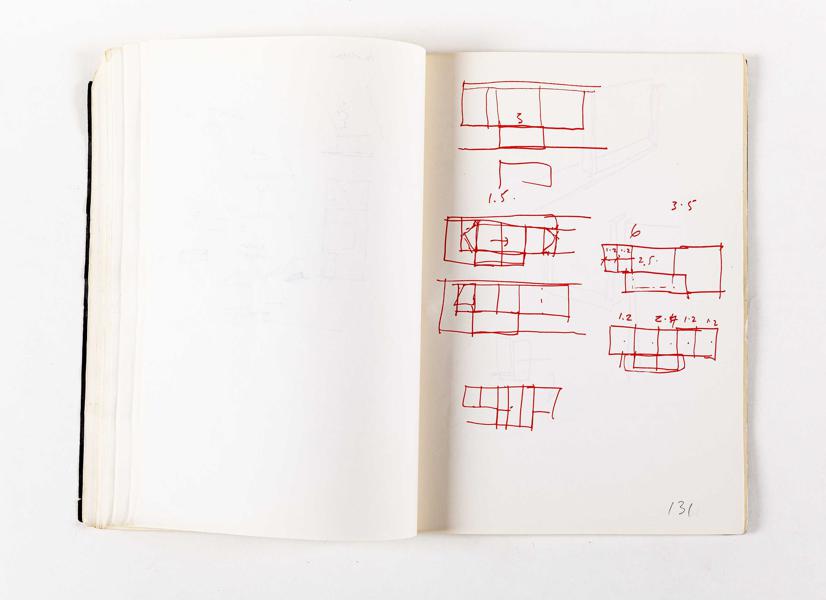 3
1.5.
3.5
6
1.2 1.2
2.5.
1.2 2.4 1.2 1.2
131